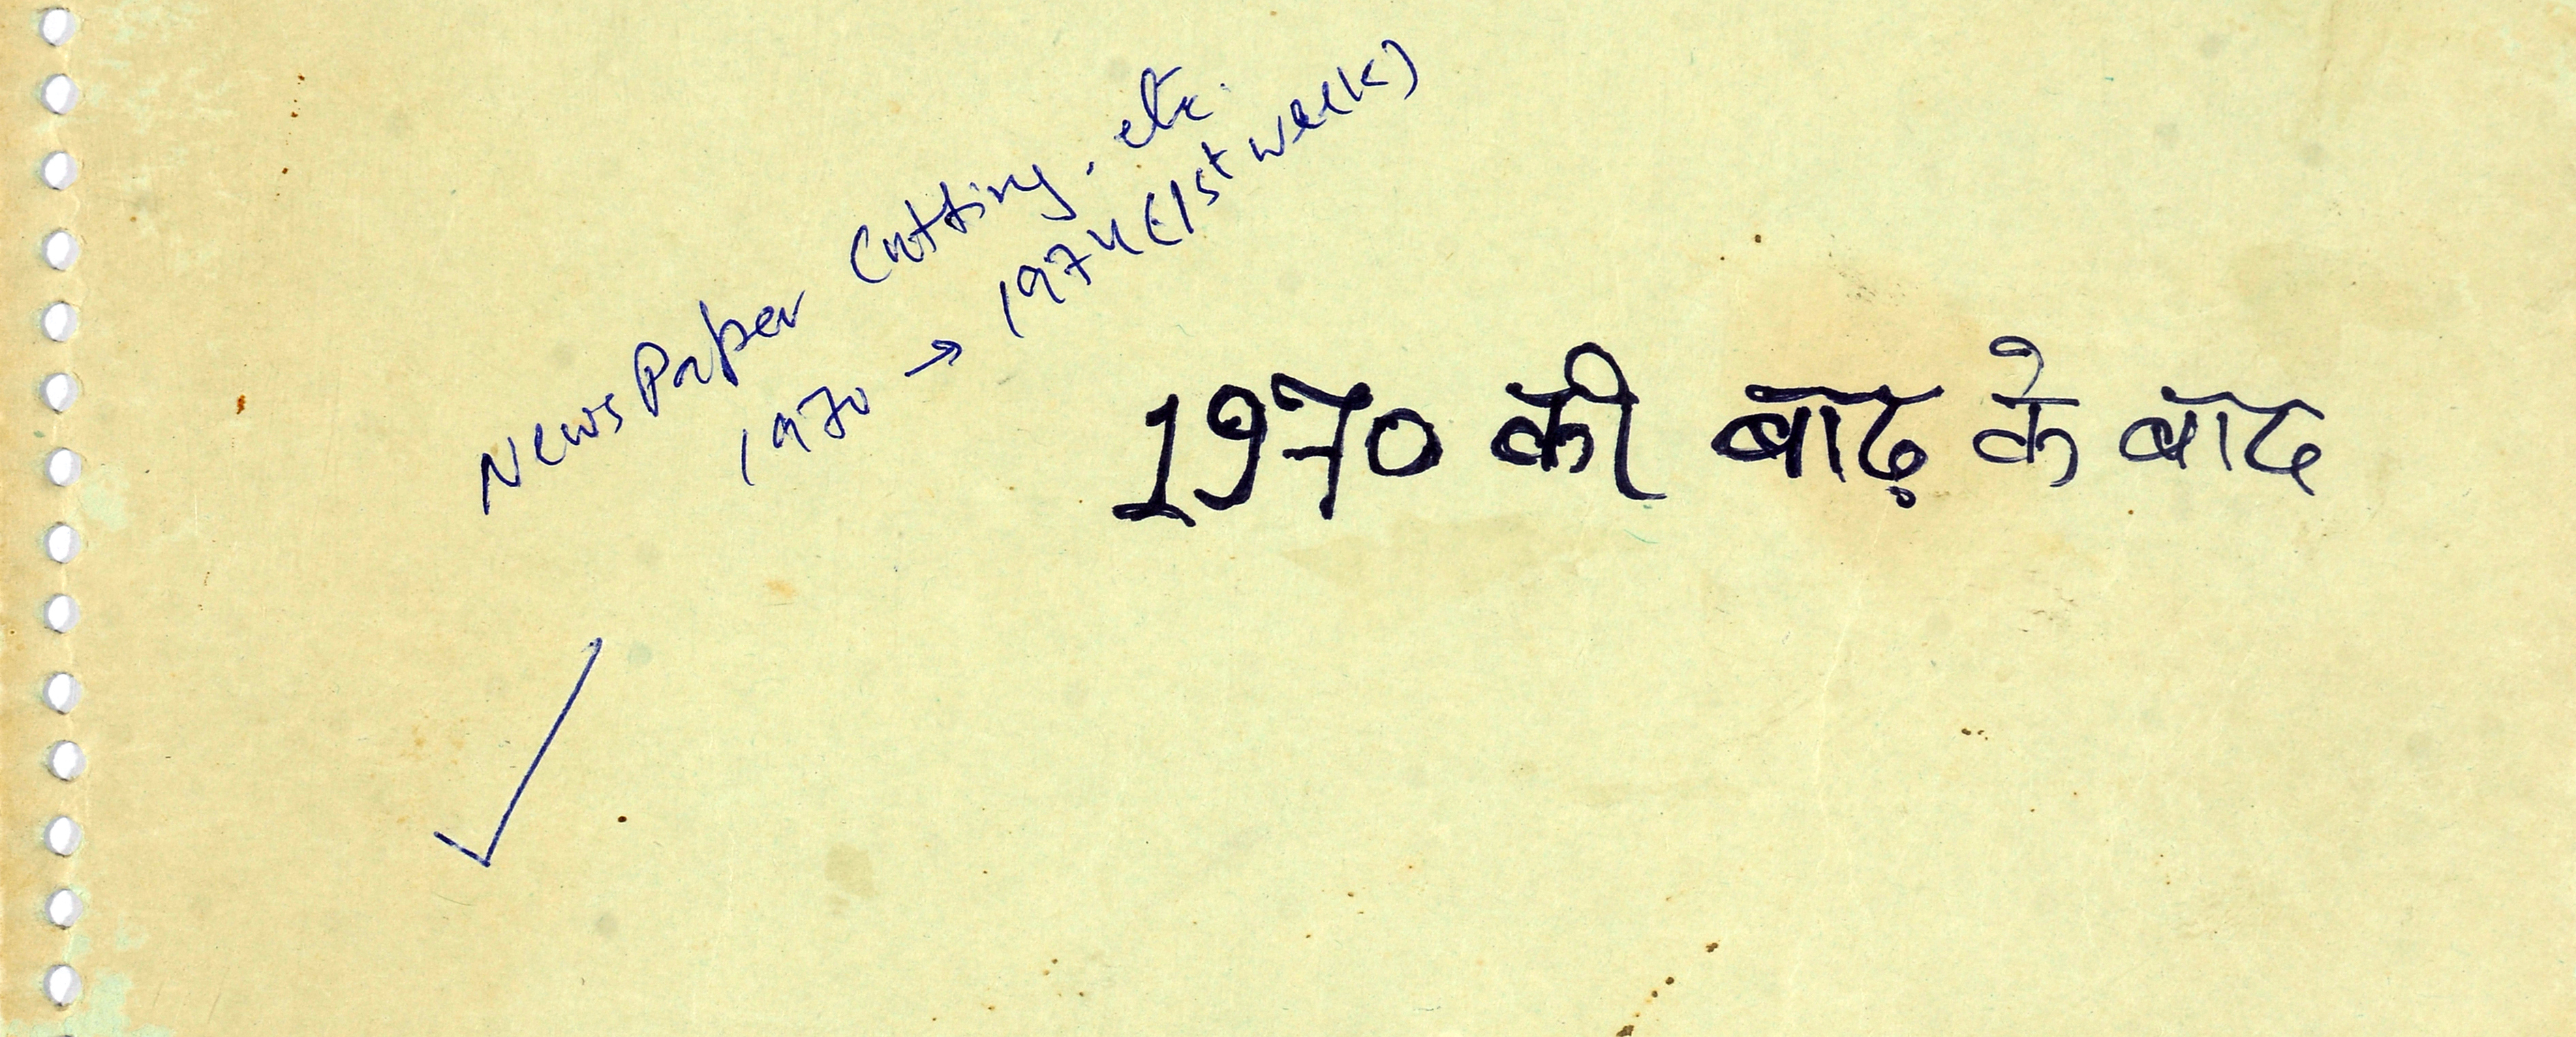 News Paper Cutting. etc.
1970 → 1974 (1st week)
1970 की बाढ़ के बाद